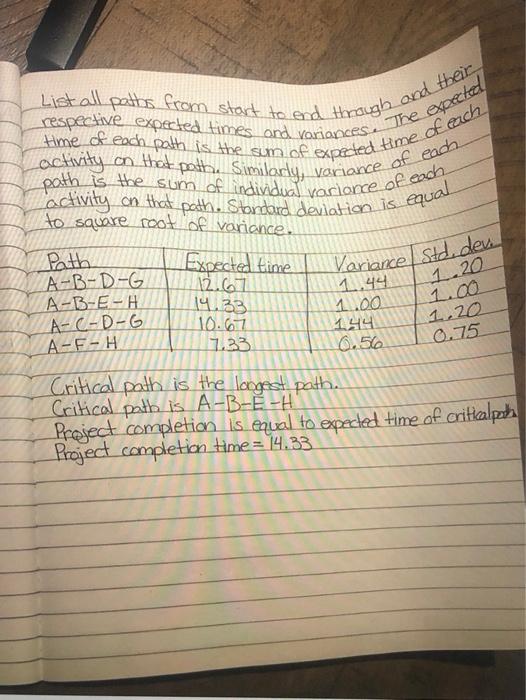 List all paths from start to end through and their
respective expected times and variances. The expected
time of each path is the sum of expected time of each
activity on that path. Similarly, variance of each
path is the sum of individual variance of each
activity on that path. Standard deviation is equal
to square root of variance.
Path Expected time Variance Std. dev.
A-B-D-G 12.67 1.44 1.20
A-B-E-H 14.33 1.00 1.00
A-C-D-G 10.67 1.44 1.20
A-F-H 7.33 0.56 0.75
Critical path is the longest path.
Critical path is A-B-E-H
Project completion is equal to expected time of critical path
Project completion time = 14.33